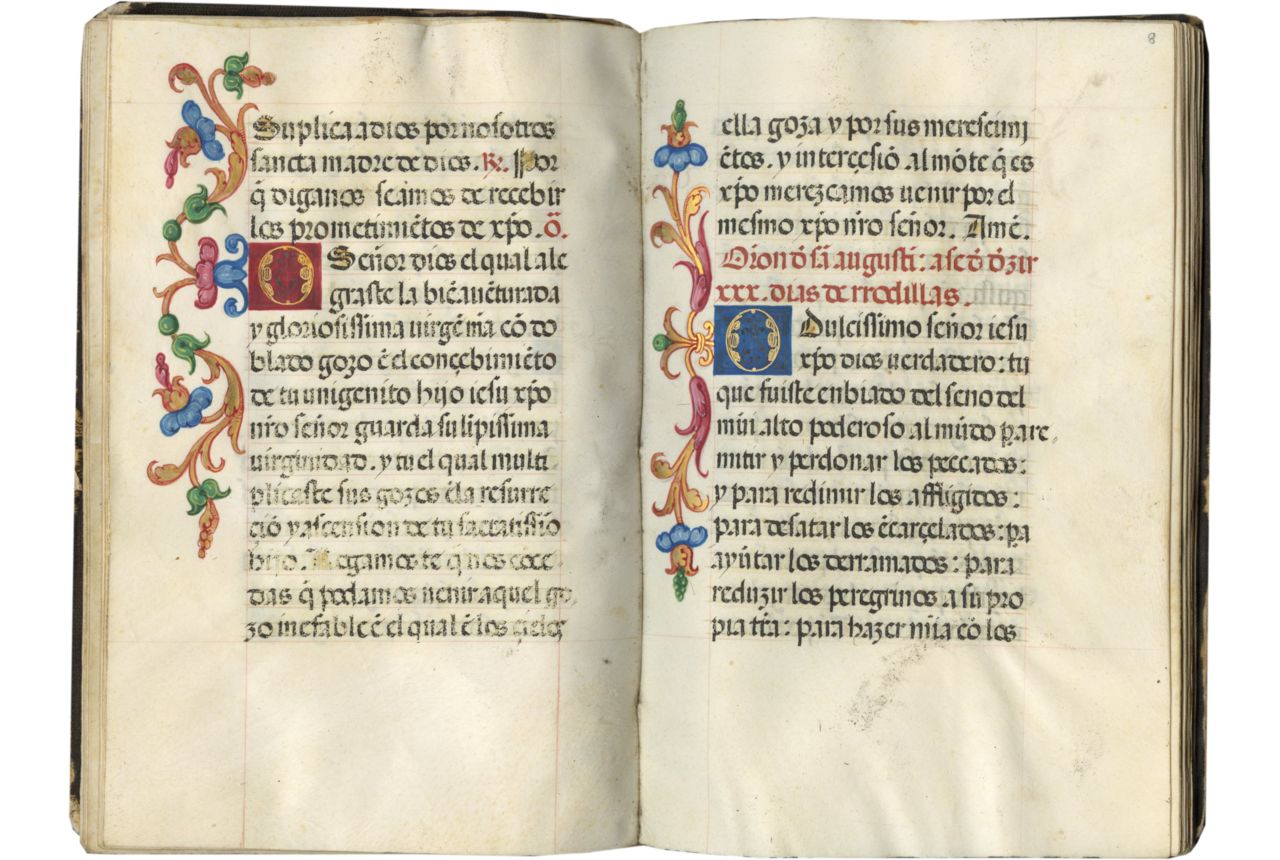 Suplica a dios por nosotros
sancta madre de dios. R̃. Por
q̃ diganos seamos de recebir
los prometimiẽtos de xp̃o. õ.
O Señor dios el qual ale
graste la biẽ auẽturada
y gloriosissima uirgẽ m̃a cõ do
blado gozo ẽ el conçebimiẽto
de tu unigenito hijo iesu xp̃o
nr̃o señor guarda su lipissima
uirginidad. y tu el qual multi
plicaste sus gozos ẽ la resurre
ciõ y ascension de tu sacratissiõ
hijo. Rogamos te q̃ nos cõce
das q̃ podamos uenir a quel go
zo inefable ẽ el qual ẽ los cielos
8
ella goza y por sus merescimi
ẽtos. y interçessiõ al mõte q̃ es
xp̃o merezcamos uenir por el
mesmo xp̃o nr̃o señor. Amẽ.
Orõn d̃ sã augusti: a se d̃ d̃zir
xxx. dias de rrodillas.
O Dulcissimo señor iesu
xp̃o dios uerdadero: tu
que fuiste enbiado del seno del
mui alto poderoso al mũdo p̱a re
mitir y perdonar los peccados:
y para redimir los affligidos:
para desatar los ẽcarçelados: pa
ayũtar los derramados: para
reduzir los peregrinos a su pro
pia tr̃a: para hazer mĩa cõ los